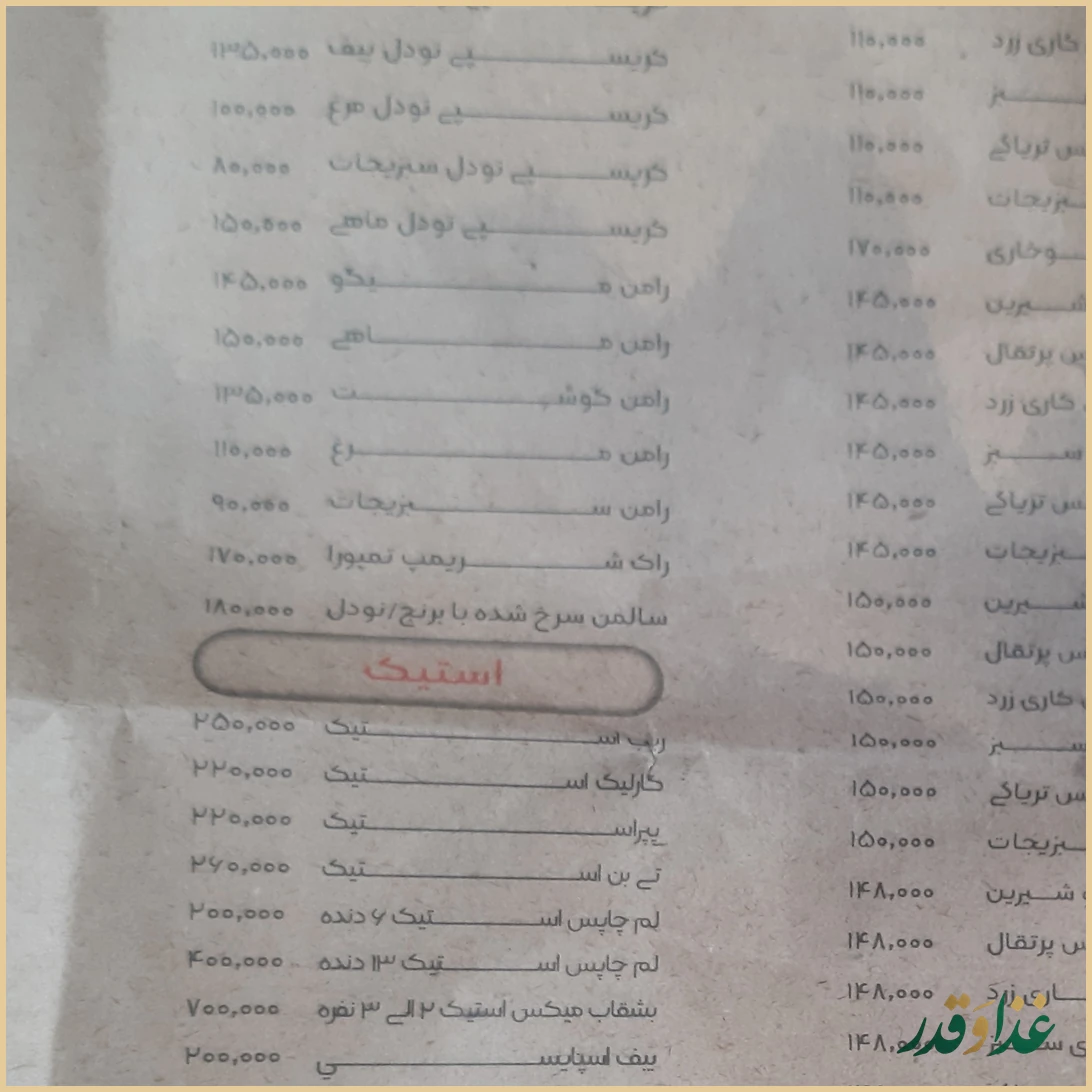 کاری زرد ۱۱۰,۰۰۰
۱۱۰,۰۰۰
تریاکی ۱۱۰,۰۰۰
سبزیجات ۱۱۰,۰۰۰
سوخاری ۱۷۰,۰۰۰
شیرین ۱۴۵,۰۰۰
پرتقال ۱۴۵,۰۰۰
کاری زرد ۱۴۵,۰۰۰
سبز ۱۴۵,۰۰۰
تریاکی ۱۴۵,۰۰۰
سبزیجات ۱۴۵,۰۰۰
شیرین ۱۵۰,۰۰۰
پرتقال ۱۵۰,۰۰۰
کاری زرد ۱۵۰,۰۰۰
سبز ۱۵۰,۰۰۰
تریاکی ۱۵۰,۰۰۰
سبزیجات ۱۵۰,۰۰۰
شیرین ۱۴۸,۰۰۰
پرتقال ۱۴۸,۰۰۰
کاری زرد ۱۴۸,۰۰۰
کریسپی نودل بیف ۱۳۵,۰۰۰
کریسپی نودل مرغ ۱۰۰,۰۰۰
کریسپی نودل سبزیجات ۸۰,۰۰۰
کریسپی نودل ماهی ۱۵۰,۰۰۰
رامن میگو ۱۴۵,۰۰۰
رامن ماهی ۱۵۰,۰۰۰
رامن گوشت ۱۳۵,۰۰۰
رامن مرغ ۱۱۰,۰۰۰
رامن سبزیجات ۹۰,۰۰۰
راک شریمپ تمپورا ۱۷۰,۰۰۰
سالمن سرخ شده با برنج/نودل ۱۸۰,۰۰۰
استیک
ریب استیک ۲۵۰,۰۰۰
گارلیک استیک ۲۲۰,۰۰۰
پپراستیک ۲۲۰,۰۰۰
تی بن استیک ۲۶۰,۰۰۰
لم چاپس استیک ۶ دنده ۲۰۰,۰۰۰
لم چاپس استیک ۱۳ دنده ۴۰۰,۰۰۰
بشقاب میکس استیک ۲ الی ۳ نفره ۷۰۰,۰۰۰
بیف اسپایسی ۲۰۰,۰۰۰
غذا و قدر